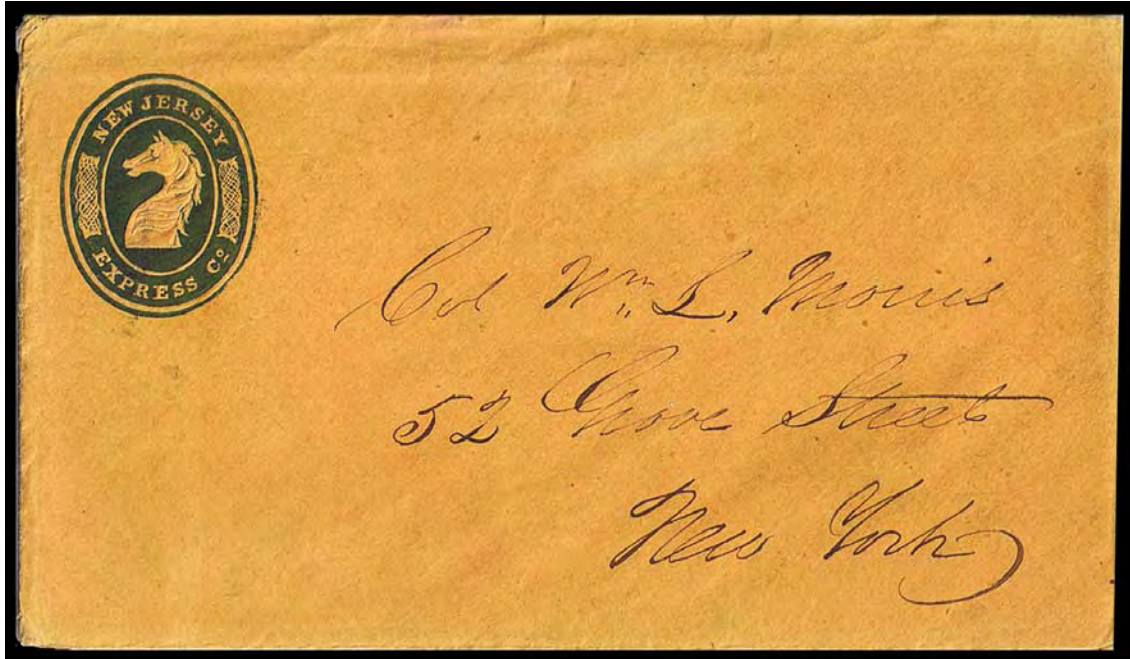 NEW JERSEY
EXPRESS Cº
Col Wm. L. Morris
52 Grove Street
New York